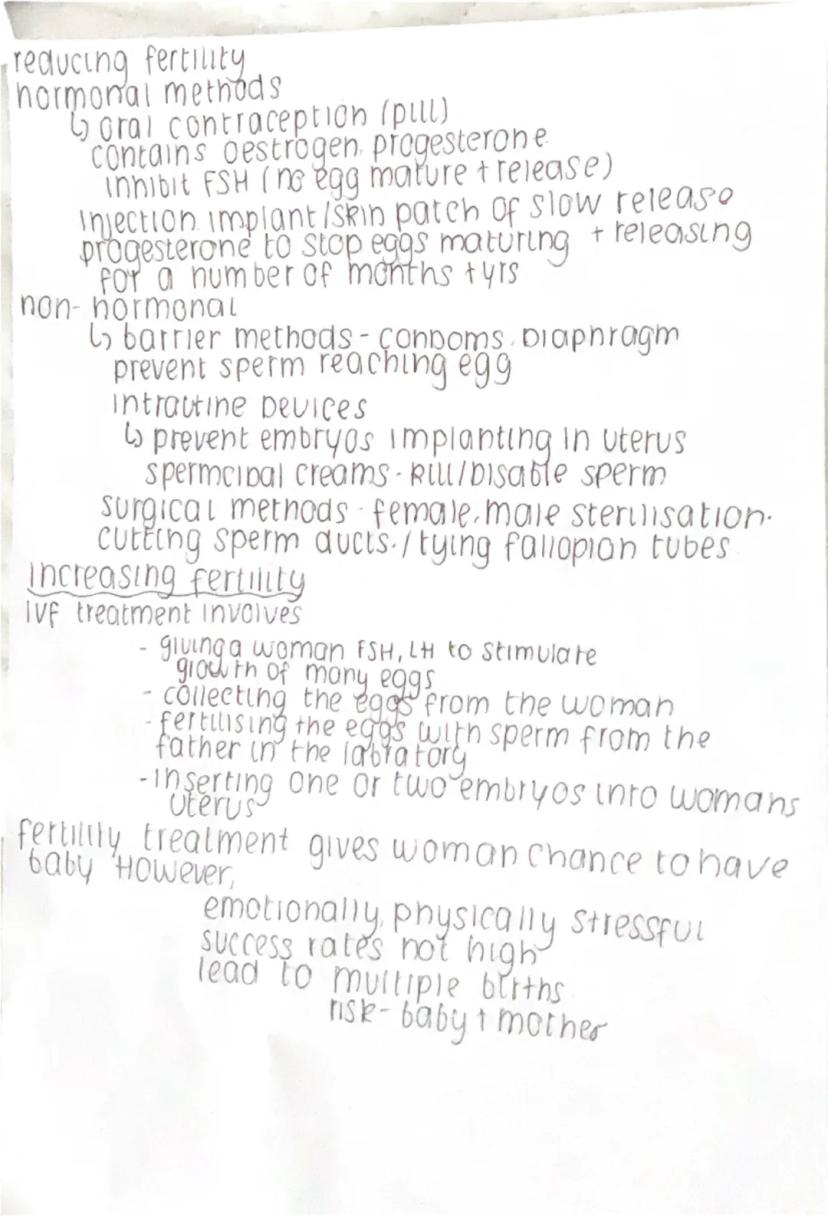 reducing fertility
hormonal methods
↳ oral contraception (pill)
contains oestrogen, progesterone
inhibit FSH (no egg mature + release)
injection, implant/skin patch of slow release
progesterone to stop eggs maturing + releasing
for a number of months + yrs
non-hormonal
↳ barrier methods - condoms, Diaphragm
prevent sperm reaching egg
intrautine Devices
↳ prevent embryos implanting in uterus
spermcidal creams - kill/Disable sperm
surgical methods - female, male sterilisation.
cutting sperm ducts./tying fallopian tubes
increasing fertility
IVF treatment involves
- giving a woman FSH, LH to stimulate
growth of many eggs
- collecting the eggs from the woman
- fertilising the eggs with sperm from the
father in the labratory
- inserting one or two embryos into womans
uterus
fertility treatment gives woman chance to have
baby However,
emotionally, physically stressful
success rates not high
lead to multiple births
risk - baby + mother